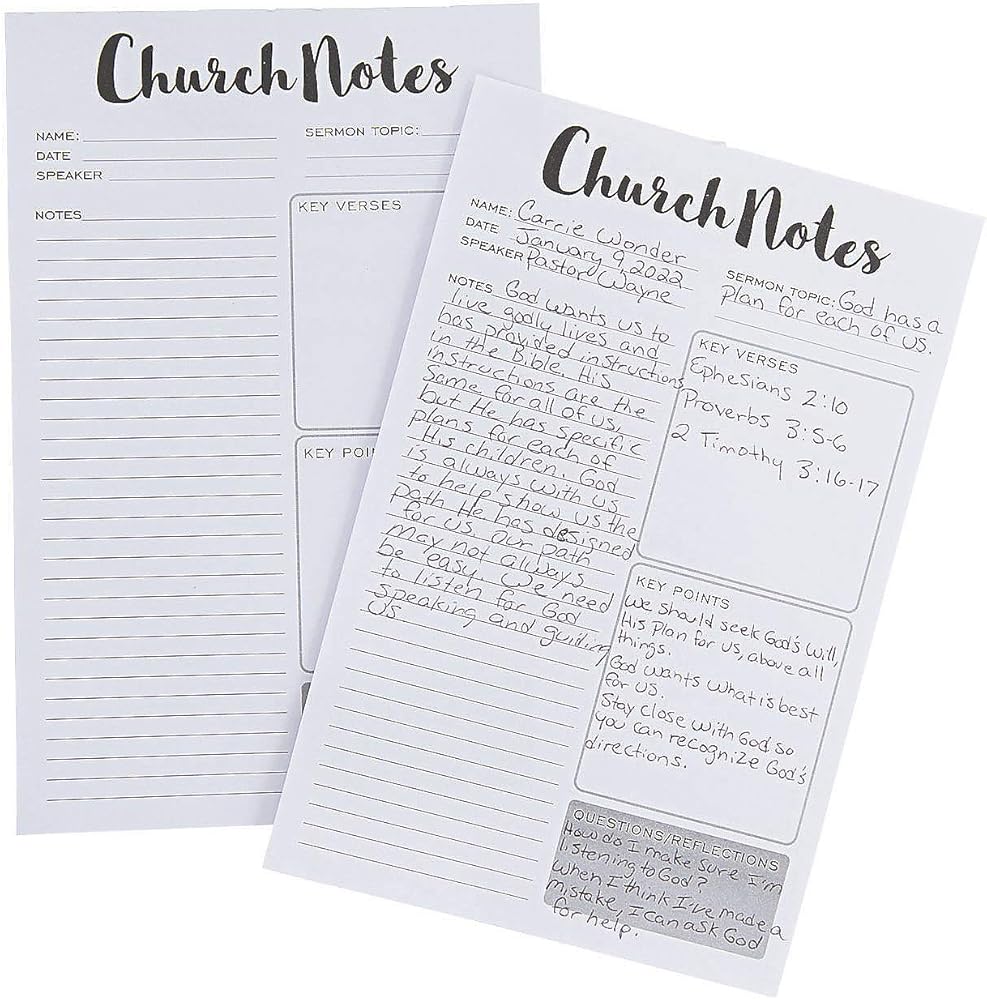 Church Notes
NAME:
DATE
SPEAKER
SERMON TOPIC:
NOTES
KEY VERSES
KEY POIN
Church Notes
NAME: Carrie Wonder
DATE January 9, 2022
SPEAKER Pastor Wayne
SERMON TOPIC: God has a
Plan for each of us.
NOTES God wants us to
live godly lives and
has provided instructions
in the Bible. His
instructions are the
same for all of us,
but He has specific
plans for each of
His children. God
is always with us
to help show us the
path He has designed
for us. Our path
may not always
be easy. We need
to listen for God
speaking and guiding
us
KEY VERSES
Ephesians 2:10
Proverbs 3:5-6
2 Timothy 3:16-17
KEY POINTS
We should seek God's will,
His Plan for us, above all
things.
God wants what is best
for us.
Stay close with God so
you can recognize God's
directions.
QUESTIONS/REFLECTIONS
How do I make sure I'm
listening to God?
When I think I've made a
mistake, I can ask God
for help.